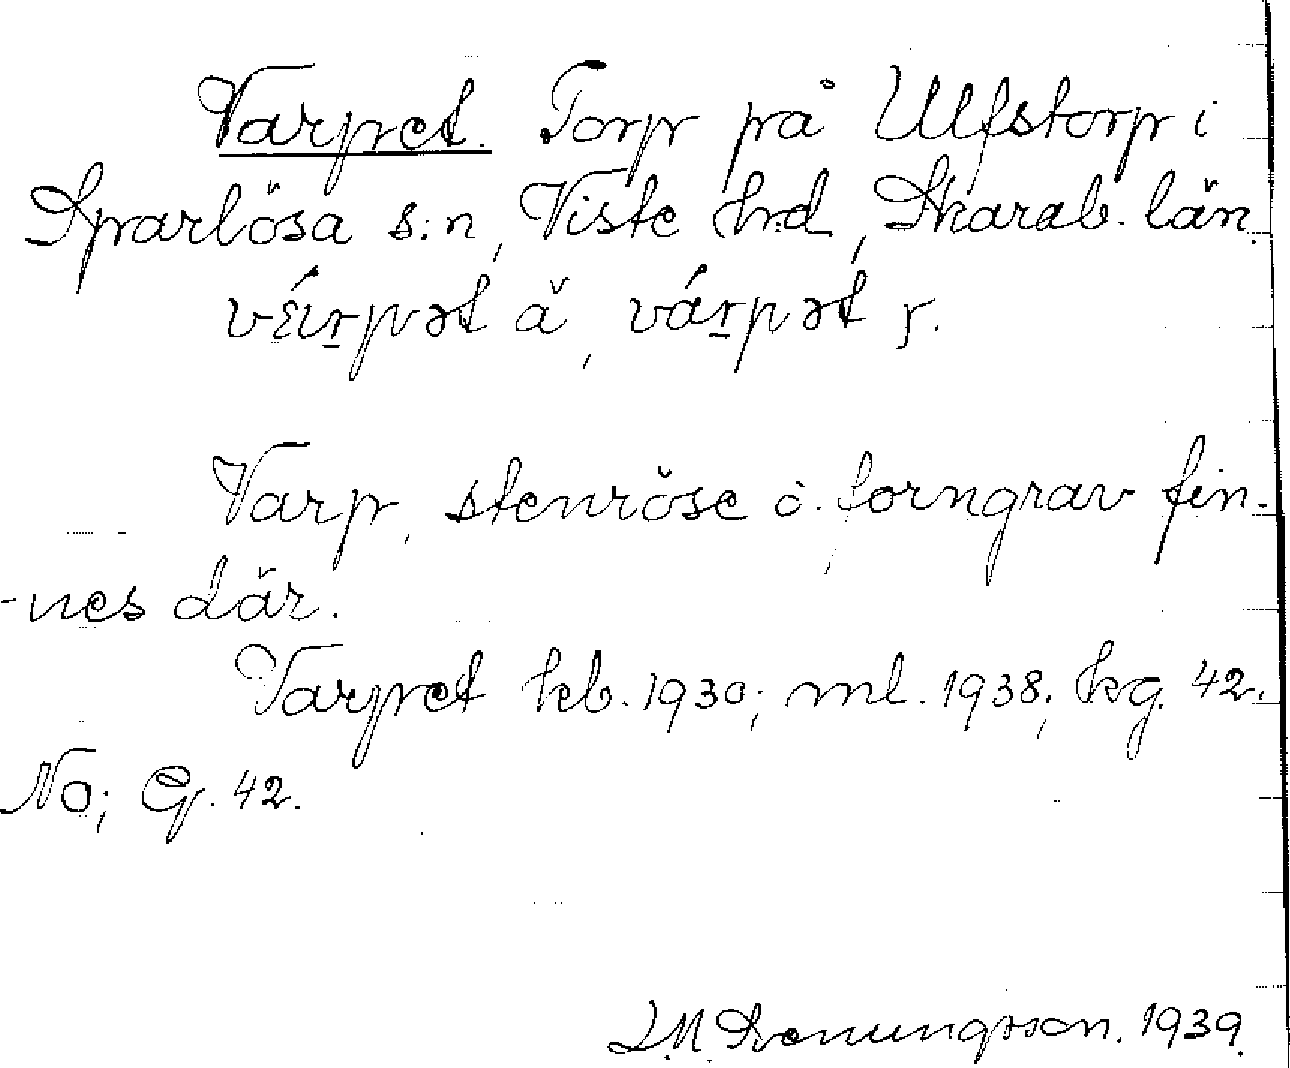 Varpet. Torp på Ulfstorp i
Sparlösa s:n, Viste hrd, Skarab. län.
ä, várpət y.
Varp, stenröse o. forngrav fin-
-nes där.
Varpet kb. 1930; ml. 1938; kg. 42.
No; G. 42.
1939.